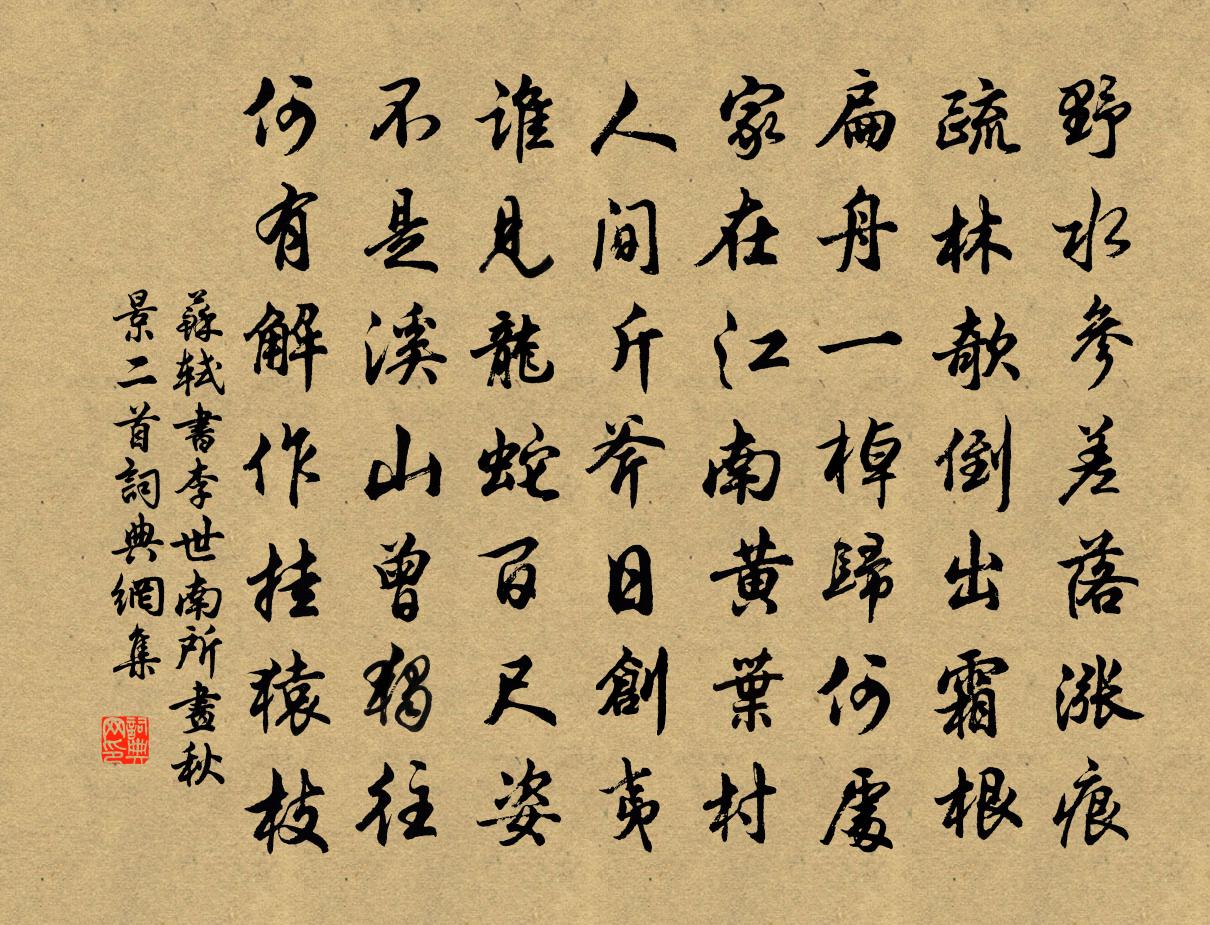 野水參差落漲痕
疏林欹倒出霜根
扁舟一棹歸何處
家在江南黃葉村
人間斤斧日創夷
誰見龍蛇百尺姿
不是溪山曾獨往
何有解作挂猿枝
蘇軾書李世南所畫秋
景二首詞典網集
詞典
网印